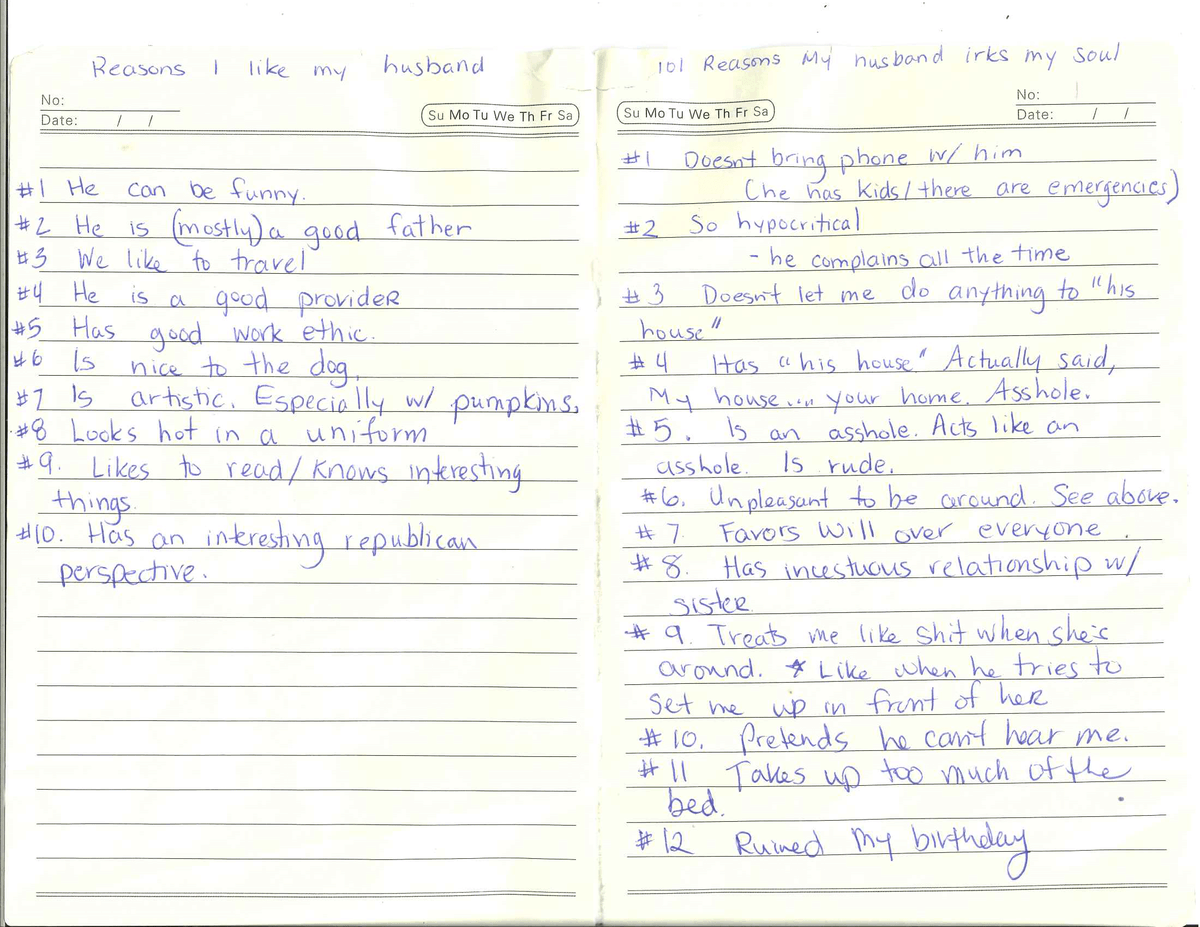 Reasons I like my husband
No:
Date: / /
Su Mo Tu We Th Fr Sa
#1 He can be funny.
#2 He is (mostly) a good father
#3 We like to travel
#4 He is a good provider
#5 Has good work ethic.
#6 Is nice to the dog.
#7 Is artistic. Especially w/ pumpkins.
#8 Looks hot in a uniform
#9. Likes to read/knows interesting
things.
#10. Has an interesting republican
perspective.
101 Reasons My husband irks my soul
Su Mo Tu We Th Fr Sa
No:
Date: / /
#1 Doesn't bring phone w/ him
(he has kids/there are emergencies)
#2 So hypocritical
- he complains all the time
#3 Doesn't let me do anything to "his
house"
#4 Has "his house" Actually said,
My house.... your home. Asshole.
#5. Is an asshole. Acts like an
asshole. Is rude.
#6. Unpleasant to be around. See above.
#7. Favors Will over everyone.
#8. Has incestuous relationship w/
sister.
#9. Treats me like shit when she's
around. * Like when he tries to
set me up in front of her
#10. Pretends he can't hear me.
#11 Takes up too much of the
bed.
#12 Ruined my birthday